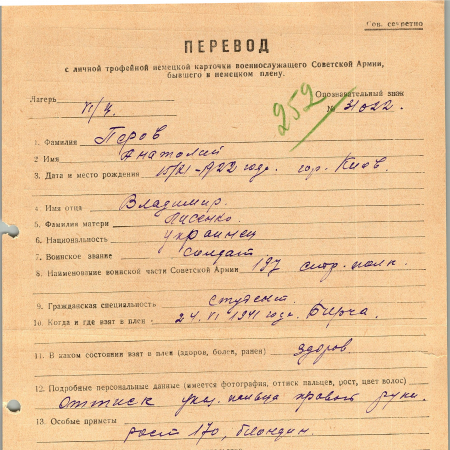 Сов. секретно
ПЕРЕВОД
с личной трофейной немецкой карточки военнослужащего Советской Армии,
бывшего в немецком плену.
Лагерь VI/К
Опознавательный знак
252
№ 31022.
1. Фамилия Перов
2 Имя Анатолий
3. Дата и место рождения 15/XI-1922 года. гор. Киев.
4. Имя отца Владимир.
5. Фамилия матери Лисенко.
6. Национальность украинец
7. Воинское звание солдат
8. Наименование воинской части Советской Армии 197 стр. полк.
9. Гражданская специальность студент.
10. Когда и где взят в плен 24.VI 1941 года. Бирча.
11. В каком состоянии взят в плен (здоров, болен, ранен) здоров.
12. Подробные персональные данные (имеется фотография, оттиск пальцев, рост, цвет волос)
Оттиск указ. пальца правой руки.
13. Особые приметы рост 170, блондин.